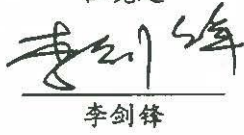 李剑锋
李剑锋